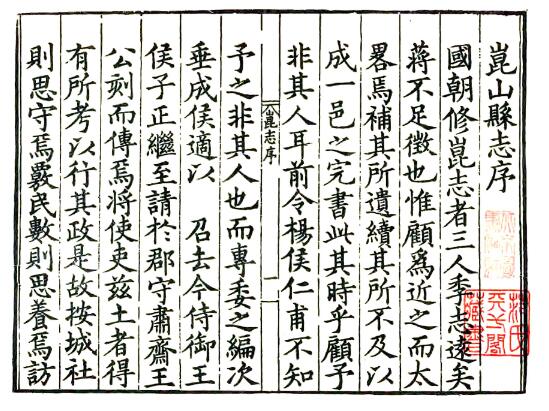 崑山縣志序
國朝修崑志者三人季志遠矣
蔣不足徵也惟顧爲近之而太
畧焉補其所遺續其所不及以
成一邑之完書此其時乎顧予
非其人耳前令楊侯仁甫不知
崑志序
一
予之非其人也而專委之編次
垂成侯適以 召去今侍御王
侯子正繼至請於郡守肅齋王
公刻而傳焉將使吏兹土者得
有所考以行其政是故按城社
則思守焉覈民數則思養焉訪